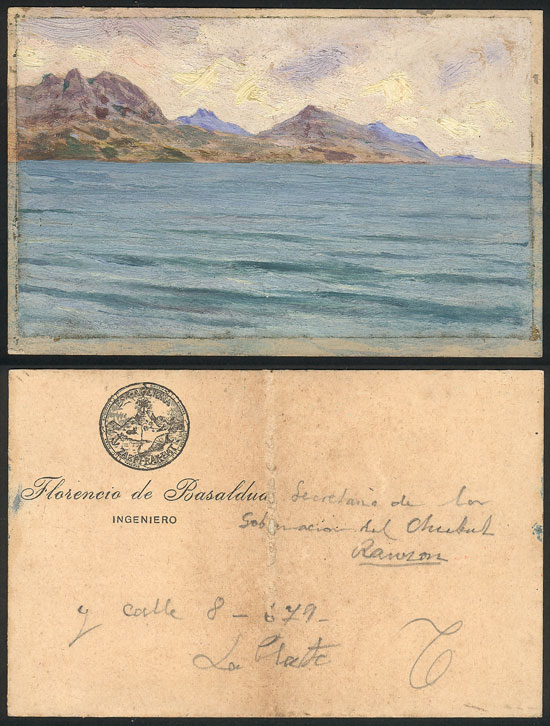 Florencio de Basaldua
INGENIERO
Secretario de la
Gobernacion del Chubut
Rawson
y calle 8 - 679 -
La Plata